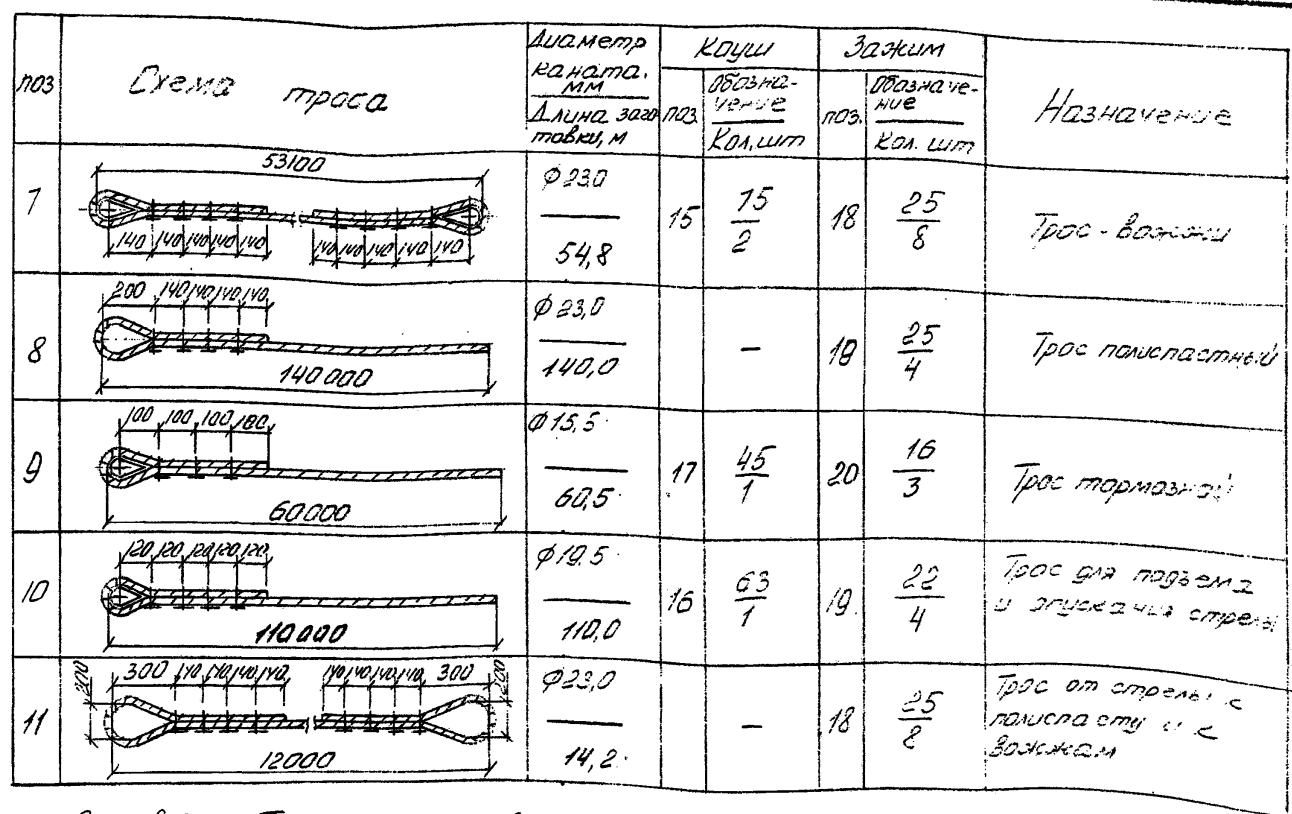 поз
Схема троса
Диаметр
каната,
мм
Длина заго
товки, м
Коуш
поз.
Обозна-
чение
Кол, шт
Зажим
поз.
Обозначе-
ние
Кол. шт
Назначение
7
53100
140 140 140 140 140
140 140 140 140 140
ф 23.0
54,8
15
75
2
18
25
8
Трос - вожжи
8
200 140 140 140 140
140 000
ф 23,0
140,0
–
18
25
4
Трос полиспастный
9
100 100 100 100
60000
ф 15,5
60,5
17
45
1
20
16
3
Трос тормозной
10
120 120 120 120 120
110 000
ф 19.5
110,0
16
63
1
19.
22
4
Трос для подъема
и опускания стрелы
11
200
300 140 140 140 140
140 140 140 140 300
200
12000
ф 23,0
14,2
–
18
25
8
Трос от стрелы к
полиспасту и к
вожжам